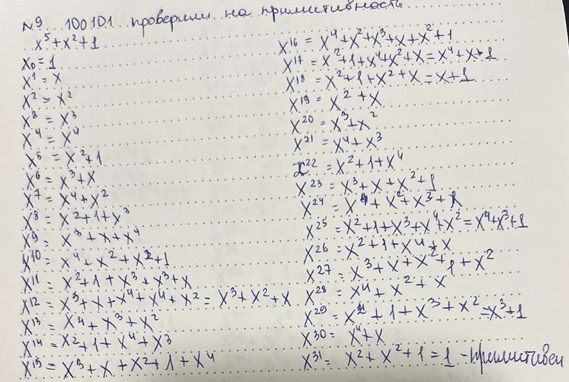 №9 100101 проверим на примитивность
x⁵+x²+1
x₀=1
x¹=x
x²=x²
x³=x³
x⁴=x⁴
x⁵=x²+1
x⁶=x³+x
x⁷=x⁴+x²
x⁸=x²+1+x³
x⁹=x³+x+x⁴
x¹⁰=x⁴+x²+x²+1
x¹¹=x²+1+x³+x³+x
x¹²=x³+x+x⁴+x⁴+x²=x³+x²+x
x¹³=x⁴+x³+x²
x¹⁴=x²+1+x⁴+x³
x¹⁵=x³+x+x²+1+x⁴
x¹⁶=x⁴+x²+x³+x+x²+1
x¹⁷=x²+1+x⁴+x²+x=x⁴+x+1
x¹⁸=x²+1+x²+x=x+1
x¹⁹=x²+x
x²⁰=x³+x²
x²¹=x⁴+x³
x²²=x²+1+x⁴
x²³=x³+x+x²+1
x²⁴=x⁴+x²+x³+x
x²⁵=x²+1+x³+x⁴+x²=x⁴+x³+1
x²⁶=x²+1+x⁴+x
x²⁷=x³+x+x²+1+x²
x²⁸=x⁴+x²+x
x²⁹=x²+1+x³+x²=x³+1
x³⁰=x⁴+x
x³¹=x²+x²+1=1 - примитивен